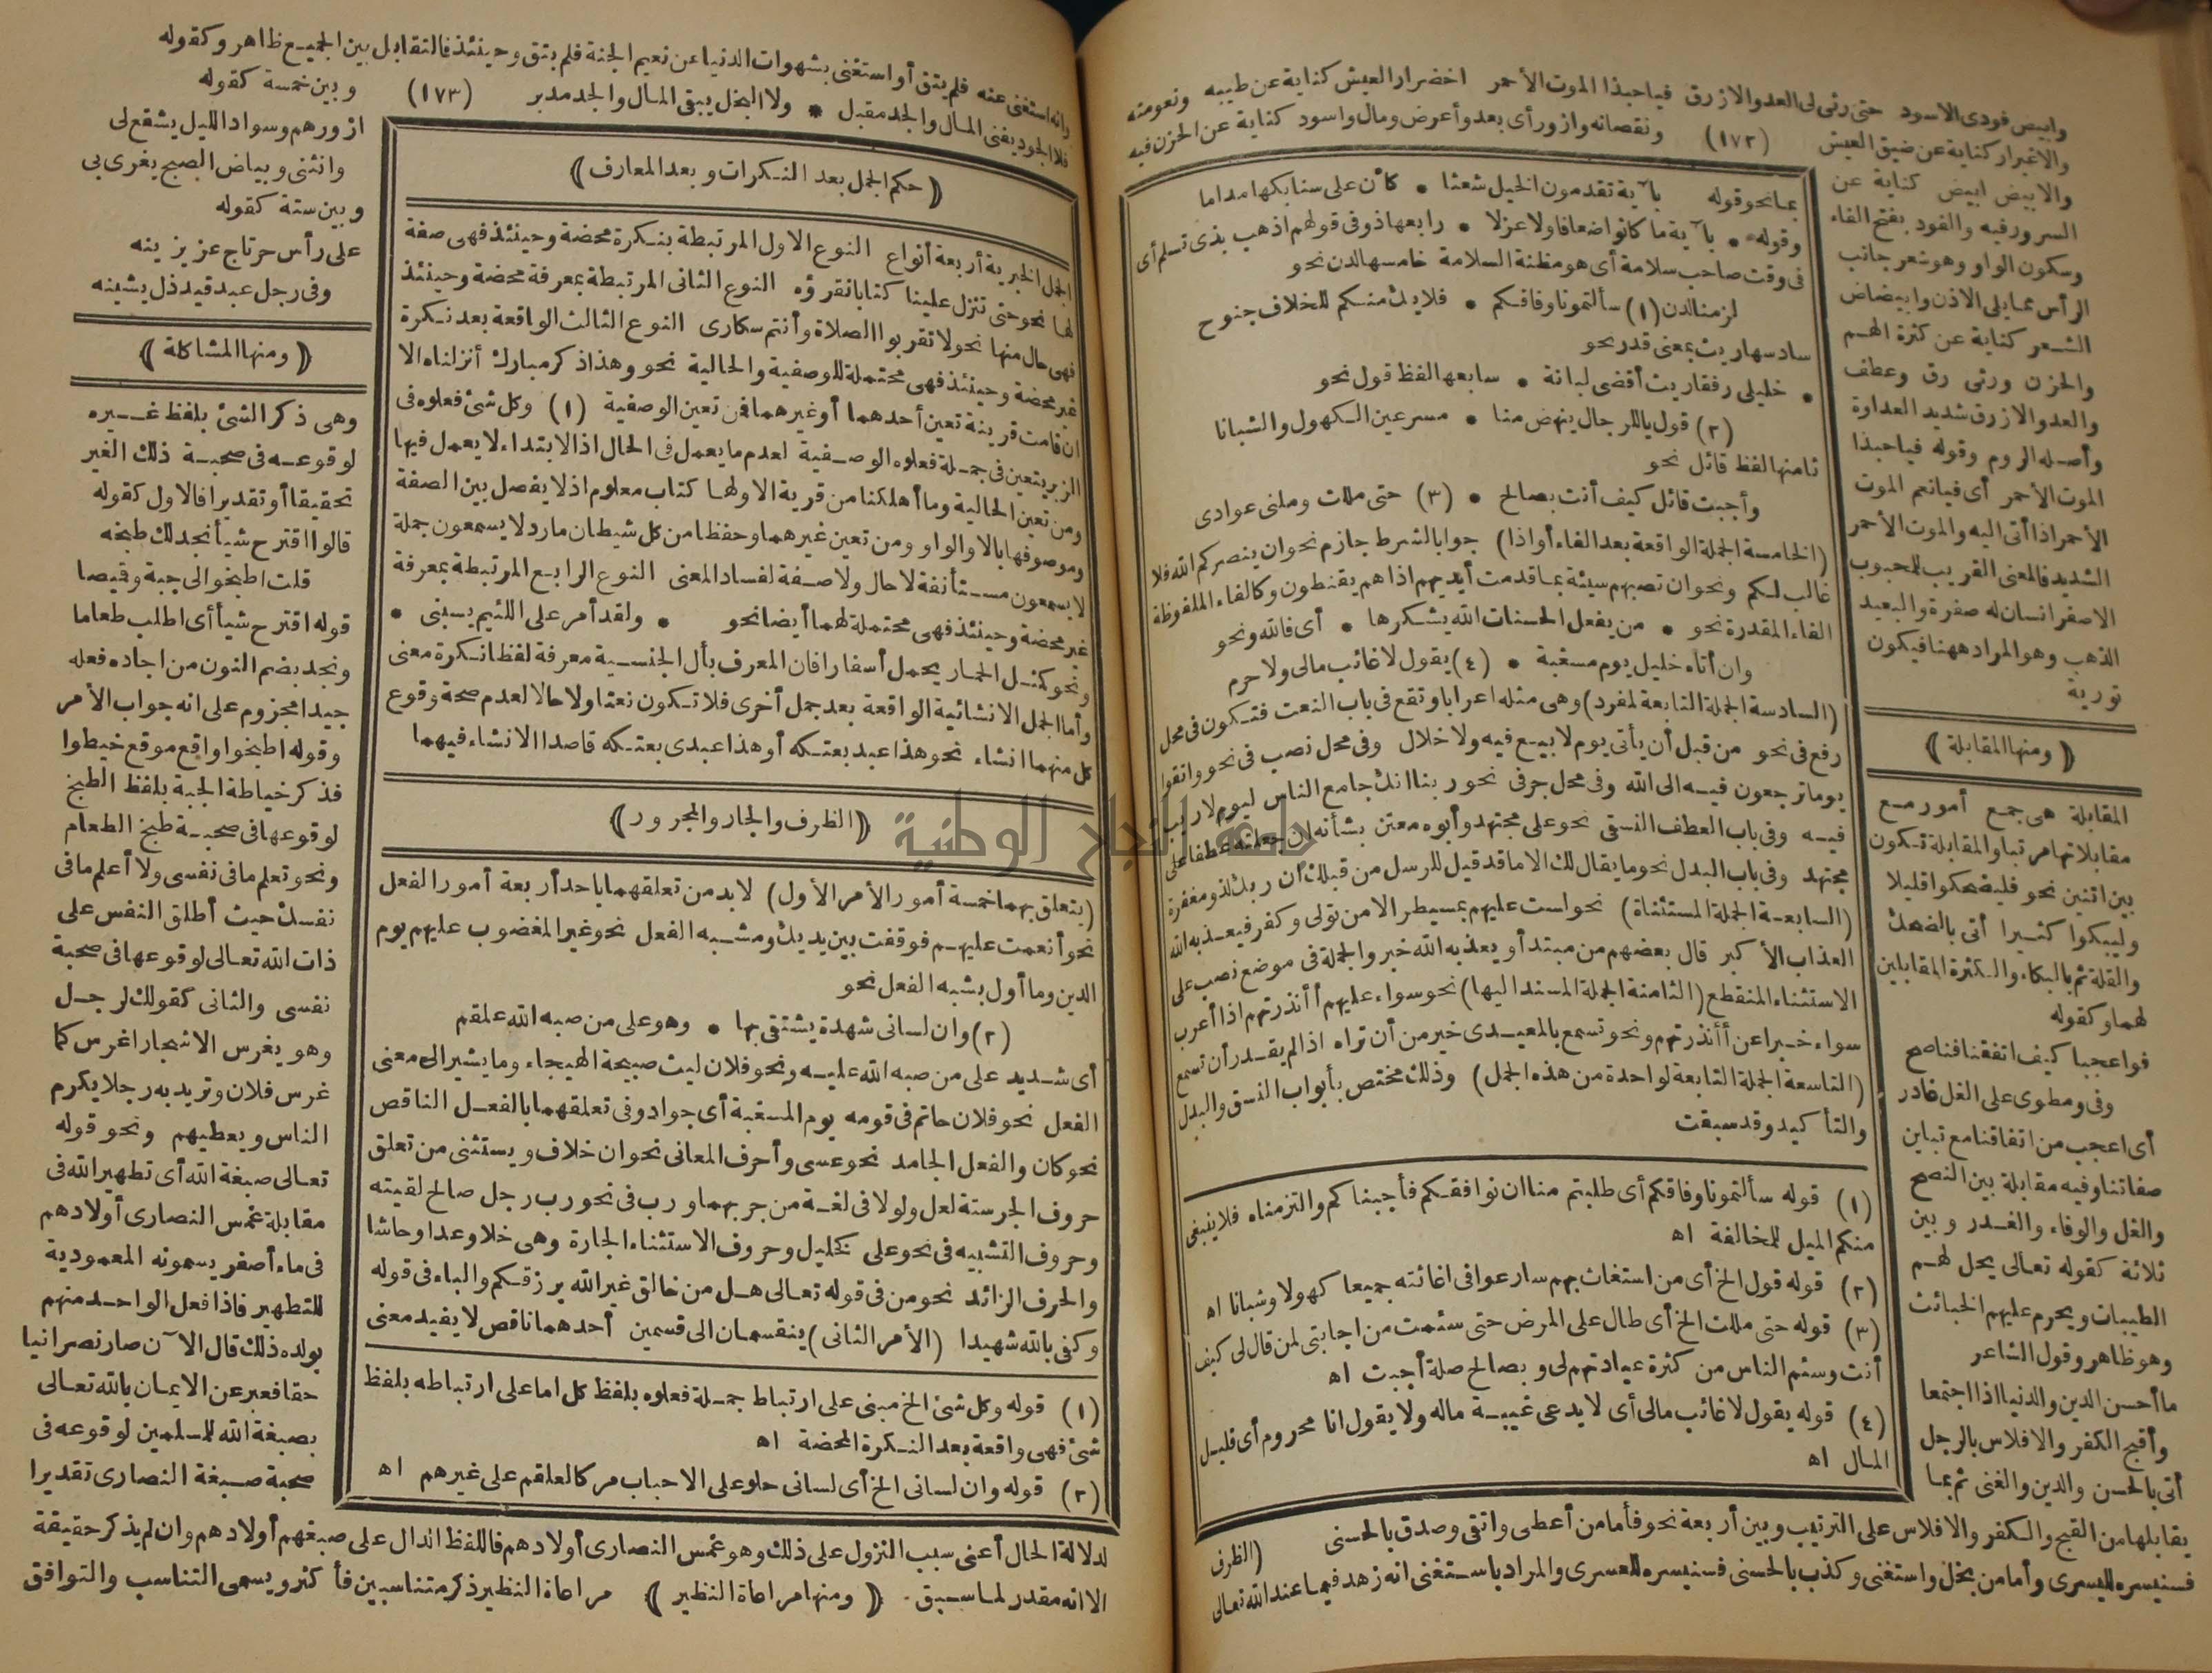 وابيض فودى الاسود حتى رثى لى العدو الازرق فياحبذا الموت الأحمر اخضرار العيش كناية عن طيبه ونعومته
والاغبرار كناية عن ضيق العيش (١٧٢) ونقصانه وازورأى بعد وأعرض ومال واسود كناية عن الحزن فيه
والابيض ابيض كناية عن
السرور فيه والفود بفتح الفاء
وسكون الواو وهو شعر جانب
الرأس مما يلى الاذن وابيضاض
الشعر كناية عن كثرة الهم
والحزن ورثى رق وعطف
والعدو الازرق شديد العداوة
وأصله الروم وقوله فياحبذا
الموت الأحمر أى فيانعم الموت
الأحمر اذا أتى اليه والموت الأحمر
الشديد فالمعنى القريب للمحبوب
الاصفر انسان له صفرة والبعيد
الذهب وهو المراد ههنا فيكون
تورية
(ومنها المقابلة)
المقابلة هى جمع أمور مع
مقابلاتها مرتبا والمقابلة تكون
بين اثنين نحو فليضحكوا قليلا
وليبكوا كثيرا أتى بالضحك
والقلة ثم بالبكاء والكثرة المقابلين
لهما وكقوله
فواعجبا كيف اتفقنا فناصح
وفى ومطوى على الغل غادر
أى اعجب من اتفاقنا مع تباين
صفاتنا وفيه مقابلة بين النصح
والغل والوفاء والغدر وبين
ثلاثة كقوله تعالى يحل لهم
الطيبات ويحرم عليهم الخبائث
وهو ظاهر وقول الشاعر
ما أحسن الدين والدنيا اذا اجتمعا
وأقبح الكفر والافلاس بالرجل
أتى بالحسن والدين والغنى ثم بما
بمانحو قوله بآية تقدمون الخيل شعثا • كأن على سنابكها مداما
وقوله • بآية ما كانوا ضعافا ولا عزلا • رابعها ذو فى قولهم اذهب بذى تسلم أى
فى وقت صاحب سلامة أى هو مظنة السلامة خامسها لدن نحو
لزمنا لدن (١) سألتمونا وفاقكم • فلا يك منكم للخلاف جنوح
سادسها ريث بمعنى قدر نحو
• خليلى رفقا ريث أقضى لبانة • سابعها لفظ قول نحو
(٢) قول ياللرجال ينهض منا • مسرعين الكهول والشبانا
ثامنها لفظ قائل نحو
وأجبت قائل كيف أنت بصالح • (٣) حتى مللت وملنى عوادى
(الخامسة الجملة الواقعة بعد الفاء أو اذا) جوابا لشرط جازم نحو ان ينصركم الله فلا
غالب لكم ونحو ان تصبهم سيئة بما قدمت أيديهم اذا هم يقنطون وكالفاء الملفوظة
الفاء المقدرة نحو • من يفعل الحسنات الله يشكرها • أى فالله ونحو
وان أتاه خليل يوم مسغبة • (٤) يقول لا غائب مالى ولا حرم
(السادسة الجملة التابعة لمفرد) وهى مثله اعرابا وتقع فى باب النعت فتكون فى محل
رفع فى نحو من قبل أن يأتى يوم لا بيع فيه ولا خلال وفى محل نصب فى نحو واتقوا
يوما ترجعون فيه الى الله وفى محل جر فى نحو ربنا انك جامع الناس ليوم لا ريب
فيه وفى باب العطف النسقى نحو على مجتهد وأبوه معتن بشأنه ان جعلته عطفا على
مجتهد وفى باب البدل نحو ما يقال لك الا ما قد قيل للرسل من قبلك أن ربك لذو مغفرة
(السابعة الجملة المستثناة) نحو است عليهم بمسيطر الا من تولى وكفر فيعذبه الله
العذاب الأكبر قال بعضهم من مبتدأ ويعذبه الله خبر والجملة فى موضع نصب على
الاستثناء المنقطع (الثامنة الجملة المسند اليها) نحو سواء عليهم أأنذرتهم اذا أعرب
سواء خبرا عن أأنذرتهم ونحو تسمع بالمعيدى خير من أن تراه اذا لم يقدر أن تسمع
(التاسعة الجملة التابعة لواحدة من هذه الجمل) وذلك مختص بأبواب النسق والبدل
والتأكيد وقد سبقت
(١) قوله سألتمونا وفاقكم أى طلبتم منا ان نوافقكم فأجبناكم والتزمناه فلا ينبغى
منكم الميل للمخالفة اه
(٢) قوله قول الخ أى من استغاث بهم سارعوا فى اغاثته جميعا كهولا وشبانا اه
(٣) قوله حتى مللت الخ أى طال على المرض حتى سئمت من اجابتى لمن قال لى كيف
أنت وسئم الناس من كثرة عيادتهم لى وبصالح صلة أجبت اه
(٤) قوله يقول لا غائب مالى أى لا يدعى غيبة ماله ولا يقول انا محروم أى قليل
المال اه
يقابلها من القبح والكفر والافلاس على الترتيب وبين أربعة نحو فأما من أعطى واتقى وصدق بالحسنى (الظرف
فسنيسره لليسرى وأما من بخل واستغنى وكذب بالحسنى فسنيسره للعسرى والمراد باستغنى انه زهد فيما عند الله تعالى
وانه استغنى عنه فلم يتق أو استغنى بشهوات الدنيا عن نعيم الجنة فلم يتق وحينئذ فالتقابل بين الجميع ظاهر وكقوله
فلا الجود يفنى المال والجد مقبل • ولا البخل يبقى المال والجد مدبر (١٧٣) وبين خمسة كقوله
ازورهم وسواد الليل يشفع لى
وانثنى وبياض الصبح يغرى بى
وبين ستة كقوله
على رأس حر تاج عز يزينه
وفى رجل عبد قيد ذل يشينه
(ومنها المشاكلة)
وهى ذكر الشئ بلفظ غيره
لوقوعه فى صحبة ذلك الغير
تحقيقا أو تقديرا فالاول كقوله
قالوا اقترح شيأ نجد لك طبخه
قلت اطبخوا لى جبة وقيصا
قوله اقترح شيأ أى اطلب طعاما
ونجد بضم النون من اجاده فعله
جيدا مجزوم على انه جواب الأمر
وقوله اطبخوا واقع موقع خيطوا
فذكر خياطة الجبة بلفظ الطبخ
لوقوعها فى صحبة طبخ الطعام
ونحو تعلم ما فى نفسى ولا أعلم ما فى
نفسك حيث أطلق النفس على
ذات الله تعالى لوقوعها فى صحبة
نفسى والثانى كقولك لرجل
وهو يغرس الاشجار اغرس كما
غرس فلان وتريد به رجلا يكرم
الناس ويعطيهم ونحو قوله
تعالى صبغة الله أى تطهير الله فى
مقابلة غمس النصارى أولادهم
فى ماء أصفر يسمونه المعمودية
للتطهير فاذا فعل الواحد منهم
بولده ذلك قال الآن صار نصرانيا
حقا فعبر عن الايمان بالله تعالى
بصبغة الله للمسلمين لوقوعه فى
صحبة صبغة النصارى تقديرا
(حكم الجمل بعد النكرات وبعد المعارف)
الجمل الخبرية أربعة أنواع النوع الاول المرتبطة بنكرة محضة وحينئذ فهى صفة
لها نحو حتى تنزل علينا كتابا نقرؤه النوع الثانى المرتبطة بمعرفة محضة وحينئذ
فهى حال منها نحو لا تقربوا الصلاة وأنتم سكارى النوع الثالث الواقعة بعد نكرة
غير محضة وحينئذ فهى محتملة للوصفية والحالية نحو وهذا ذكر مبارك أنزلناه الا
ان قامت قرينة تعين أحدهما أو غيرهما فمن تعين الوصفية (١) وكل شئ فعلوه فى
الزبر يتعين فى جملة فعلوه الوصفية لعدم ما يعمل فى الحال اذ الابتداء لا يعمل فيها
ومن تعين الحالية وما أهلكنا من قرية الا ولها كتاب معلوم اذ لا يفصل بين الصفة
وموصوفها بالا والواو ومن تعين غيرهما وحفظا من كل شيطان مارد لا يسمعون جملة
لا يسمعون مستأنفة لا حال ولا صفة لفساد المعنى النوع الرابع المرتبطة بمعرفة
غير محضة وحينئذ فهى محتملة لهما أيضا نحو • ولقد أمر على اللئيم يسبنى •
ونحو كمثل الحمار يحمل أسفارا فان المعرف بأل الجنسية معرفة لفظا نكرة معنى
وأما الجمل الانشائية الواقعة بعد جمل أخرى فلا تكون نعتا ولا حالا لعدم صحة وقوع
كل منهما انشاء نحو هذا عبد بعتكه أو هذا عبدى بعتكه قاصدا الانشاء فيهما
(الظرف والجار والمجرور)
(يتعلق بهما خمسة أمور الأمر الأول) لابد من تعلقهما باحد أربعة أمور الفعل
نحو أنعمت عليهم فوقفت بين يديك ومشبه الفعل نحو غير المغضوب عليهم يوم
الدين وما أول بشبه الفعل نحو
(٢) وان لسانى شهدة يشتفى بها • وهو على من صبه الله علقم
أى شديد على من صبه الله عليه ونحو فلان ليث صبيحة الهيجاء وما يشير الى معنى
الفعل نحو فلان حاتم فى قومه يوم المسغبة أى جواد وفى تعلقهما بالفعل الناقص
نحو كان والفعل الجامد نحو عسى وأحرف المعانى نحو ان خلاف ويستثنى من تعلق
حروف الجر ستة لعل ولولا فى لغة من جر بهما ورب فى نحو رب رجل صالح لقيته
وحروف التشبيه فى نحو على كخليل وحروف الاستثناء الجارة وهى خلا وعدا وحاشا
والحرف الزائد نحو من فى قوله تعالى هل من خالق غير الله يرزقكم والباء فى قوله
وكفى بالله شهيدا (الأمر الثانى) ينقسمان الى قسمين أحدهما ناقص لا يفيد معنى
(١) قوله وكل شئ الخ مبنى على ارتباط جملة فعلوه بلفظ كل اما على ارتباطه بلفظ
شئ فهى واقعة بعد النكرة المحضة اه
(٢) قوله وان لسانى الخ أى لسانى حلو على الاحباب مر كالعلقم على غيرهم اه
لدلالة الحال أعنى سبب النزول على ذلك وهو غمس النصارى أولادهم فاللفظ الدال على صبغهم أولادهم وان لم يذكر حقيقة
الا انه مقدر لما سبق. (ومنها مراعاة النظير) مراعاة النظير ذكر متناسبين فأكثر ويسمى التناسب والتوافق
جامعة النجاح الوطنية